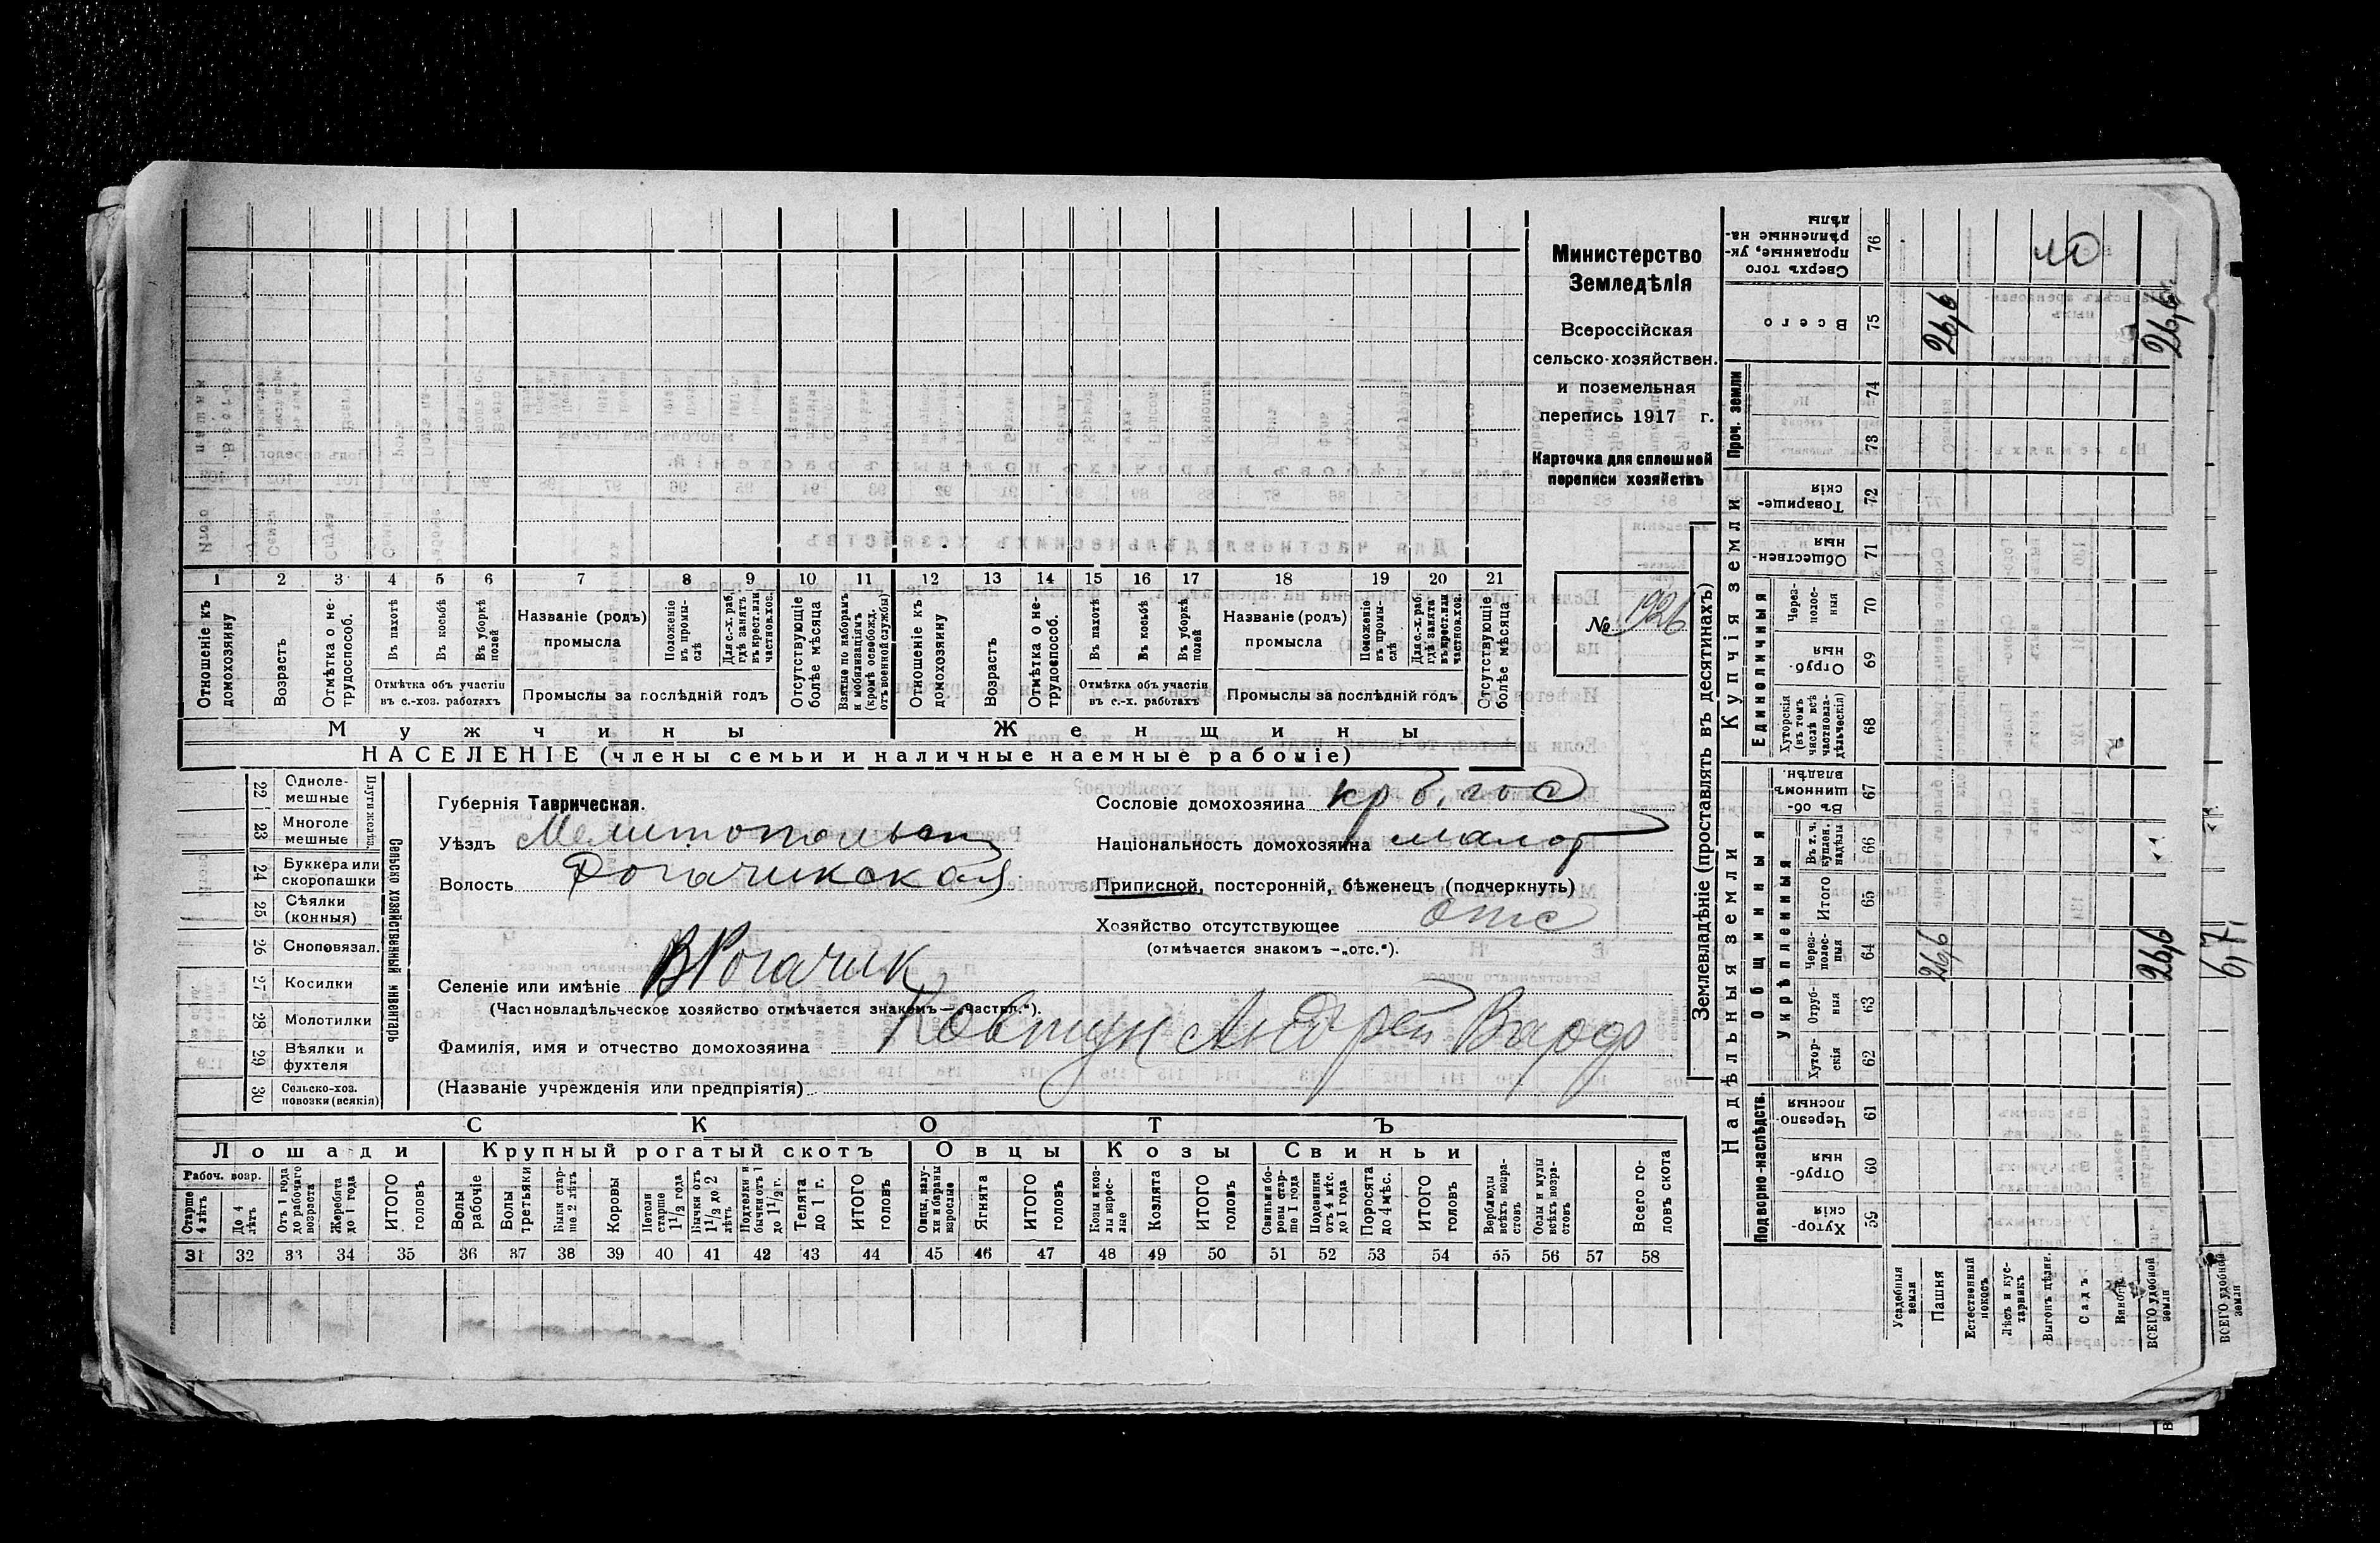 Министерство
Земледѣлія
Всероссійская
сельско-хозяйствен.
и поземельная
перепись 1917 г.
Карточка для сплошной
переписи хозяйствъ
№ 1926
1 2 3 4 5 6 7 8 9 10 11 12 13 14 15 16 17 18 19 20 21
Отношеніе къ домохозяину
Возрастъ
Отмѣтка о нетрудоспособ.
Въ пахотѣ
Въ косьбѣ
Въ уборкѣ полей
Отмѣтка объ участіи въ с.-хоз. работахъ
Названіе (родъ) промысла
Положеніе въ промыслѣ
Для с.-х. раб. гдѣ занятъ въ крест. или частнов. хоз.
Промыслы за послѣдній годъ
Отсутствующіе болѣе мѣсяца
Взятые по наборамъ и мобилизаціямъ (кромѣ освобожд. отъ военной службы)
Отношеніе къ домохозяину
Возрастъ
Отмѣтка о нетрудоспособ.
Въ пахотѣ
Въ косьбѣ
Въ уборкѣ полей
Отмѣтка объ участіи въ с.-х. работахъ
Названіе (родъ) промысла
Положеніе въ промыслѣ
Для с.-х. раб. гдѣ занята въ крест. или частнов. хоз.
Промыслы за послѣдній годъ
Отсутствующіе болѣе мѣсяца
Мужчины Женщины
НАСЕЛЕНІЕ (члены семьи и наличные наемные рабочіе)
22 Однолемешные
23 Многолемешные
24 Буккера или скоропашки
25 Сѣялки (конныя)
26 Сноповязал.
27 Косилки
28 Молотилки
29 Вѣялки и фухтеля
30 Сельско-хоз. повозки (всякія)
Сельско хозяйственный инвентарь
Губернія Таврическая.
Уѣздъ Мелитопольск
Волость Рогачикская
Селеніе или имѣніе В Рогачик
(Частновладѣльческое хозяйство отмѣчается знакомъ—„частвл.“).
Фамилія, имя и отчество домохозяина Ковтун Андрей
(Названіе учрежденія или предпріятія)
Сословіе домохозяина кр б. гос
Національность домохозяина малор
Приписной, посторонній, бѣженецъ (подчеркнуть)
Хозяйство отсутствующее отс
(отмѣчается знакомъ —„отс.“).
СКОТЪ
Лошади Крупный рогатый скотъ Овцы Козы Свиньи
Рабоч. возр.
Старше 4 лѣтъ
До 4 лѣтъ
Отъ 1 года до рабочаго возраста
Жеребята до 1 года
ИТОГО головъ
Волы рабочіе
Волы третьяки
Быки старше 2 лѣтъ
Коровы
Нетели старше 1 1/2 года
Бычки отъ 1 1/2 до 2 лѣтъ
Подтелки и бычки отъ 1 до 1 1/2 г.
Телята до 1 г.
ИТОГО головъ
Овцы, валухи и бараны взрослые
Ягнята
ИТОГО головъ
Козы и козлы взрослые
Козлята
ИТОГО головъ
Свиньи и боровы старше 1 года
Подсвинки отъ 4 мѣс. до 1 года
Поросята до 4 мѣс.
ИТОГО головъ
Верблюды всѣхъ возрастовъ
Ослы и мулы всѣхъ возрастовъ
Всего головъ скота
31 32 33 34 35 36 37 38 39 40 41 42 43 44 45 46 47 48 49 50 51 52 53 54 55 56 57 58
Землевладѣніе (проставлять въ десятинахъ)
Надѣльныя земли Купчія земли
Подворно-наслѣдств.
Общинныя
Укрѣпленныя
Единоличныя
Проч. земли
Сверхъ того проданные, укрѣпленные надѣлы 76
Всего 75
74
73
Товарищескія 72
Общественныя 71
Черезполосныя 70
Отрубныя 69
Хуторскія (въ томъ числѣ всѣ частновладѣльческія) 68
Въ общинномъ владѣн. 67
Въ т. ч. куплен. надѣлы 66
Итого 65
Черезполосныя 64
Отрубныя 63
Хуторскія 62
Черезполосныя 61
Отрубныя 60
Хуторскія 59
Усадебныя земли
Пашня
Естественный покосъ
Лѣсъ и кустарникъ
Выгонъ цѣлин.
Садъ
ВСЕГО удобной земли
ВСЕГО удобной земли
26,6
26,6
26,6
26,6
6,7